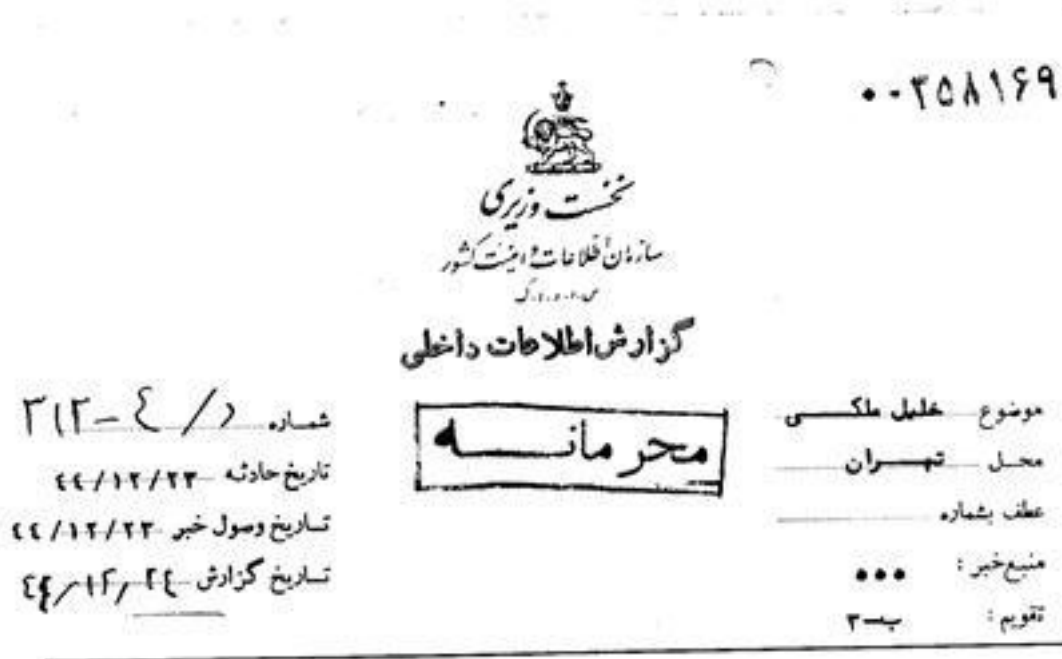 ۰۰۳۵۸۱۶۹
نخست وزیری
سازمان اطلاعات و امنیت کشور
س.ا.و.ا.ک
گزارش اطلاعات داخلی
محرمانه
موضوع خلیل ملکی
محل تهران
عطف بشماره
منبع خبر : •••
تقویم : ب-۳
شماره ۳۱۲-٤ / د
تاریخ حادثه ٤٤/۱۲/۲۳
تاریخ وصول خبر ٤٤/۱۲/۲۳
تاریخ گزارش ٤٤/۱۲/۲٤